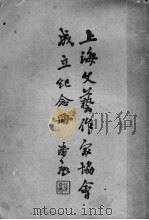 上海文艺作家協會
成立纪念冊